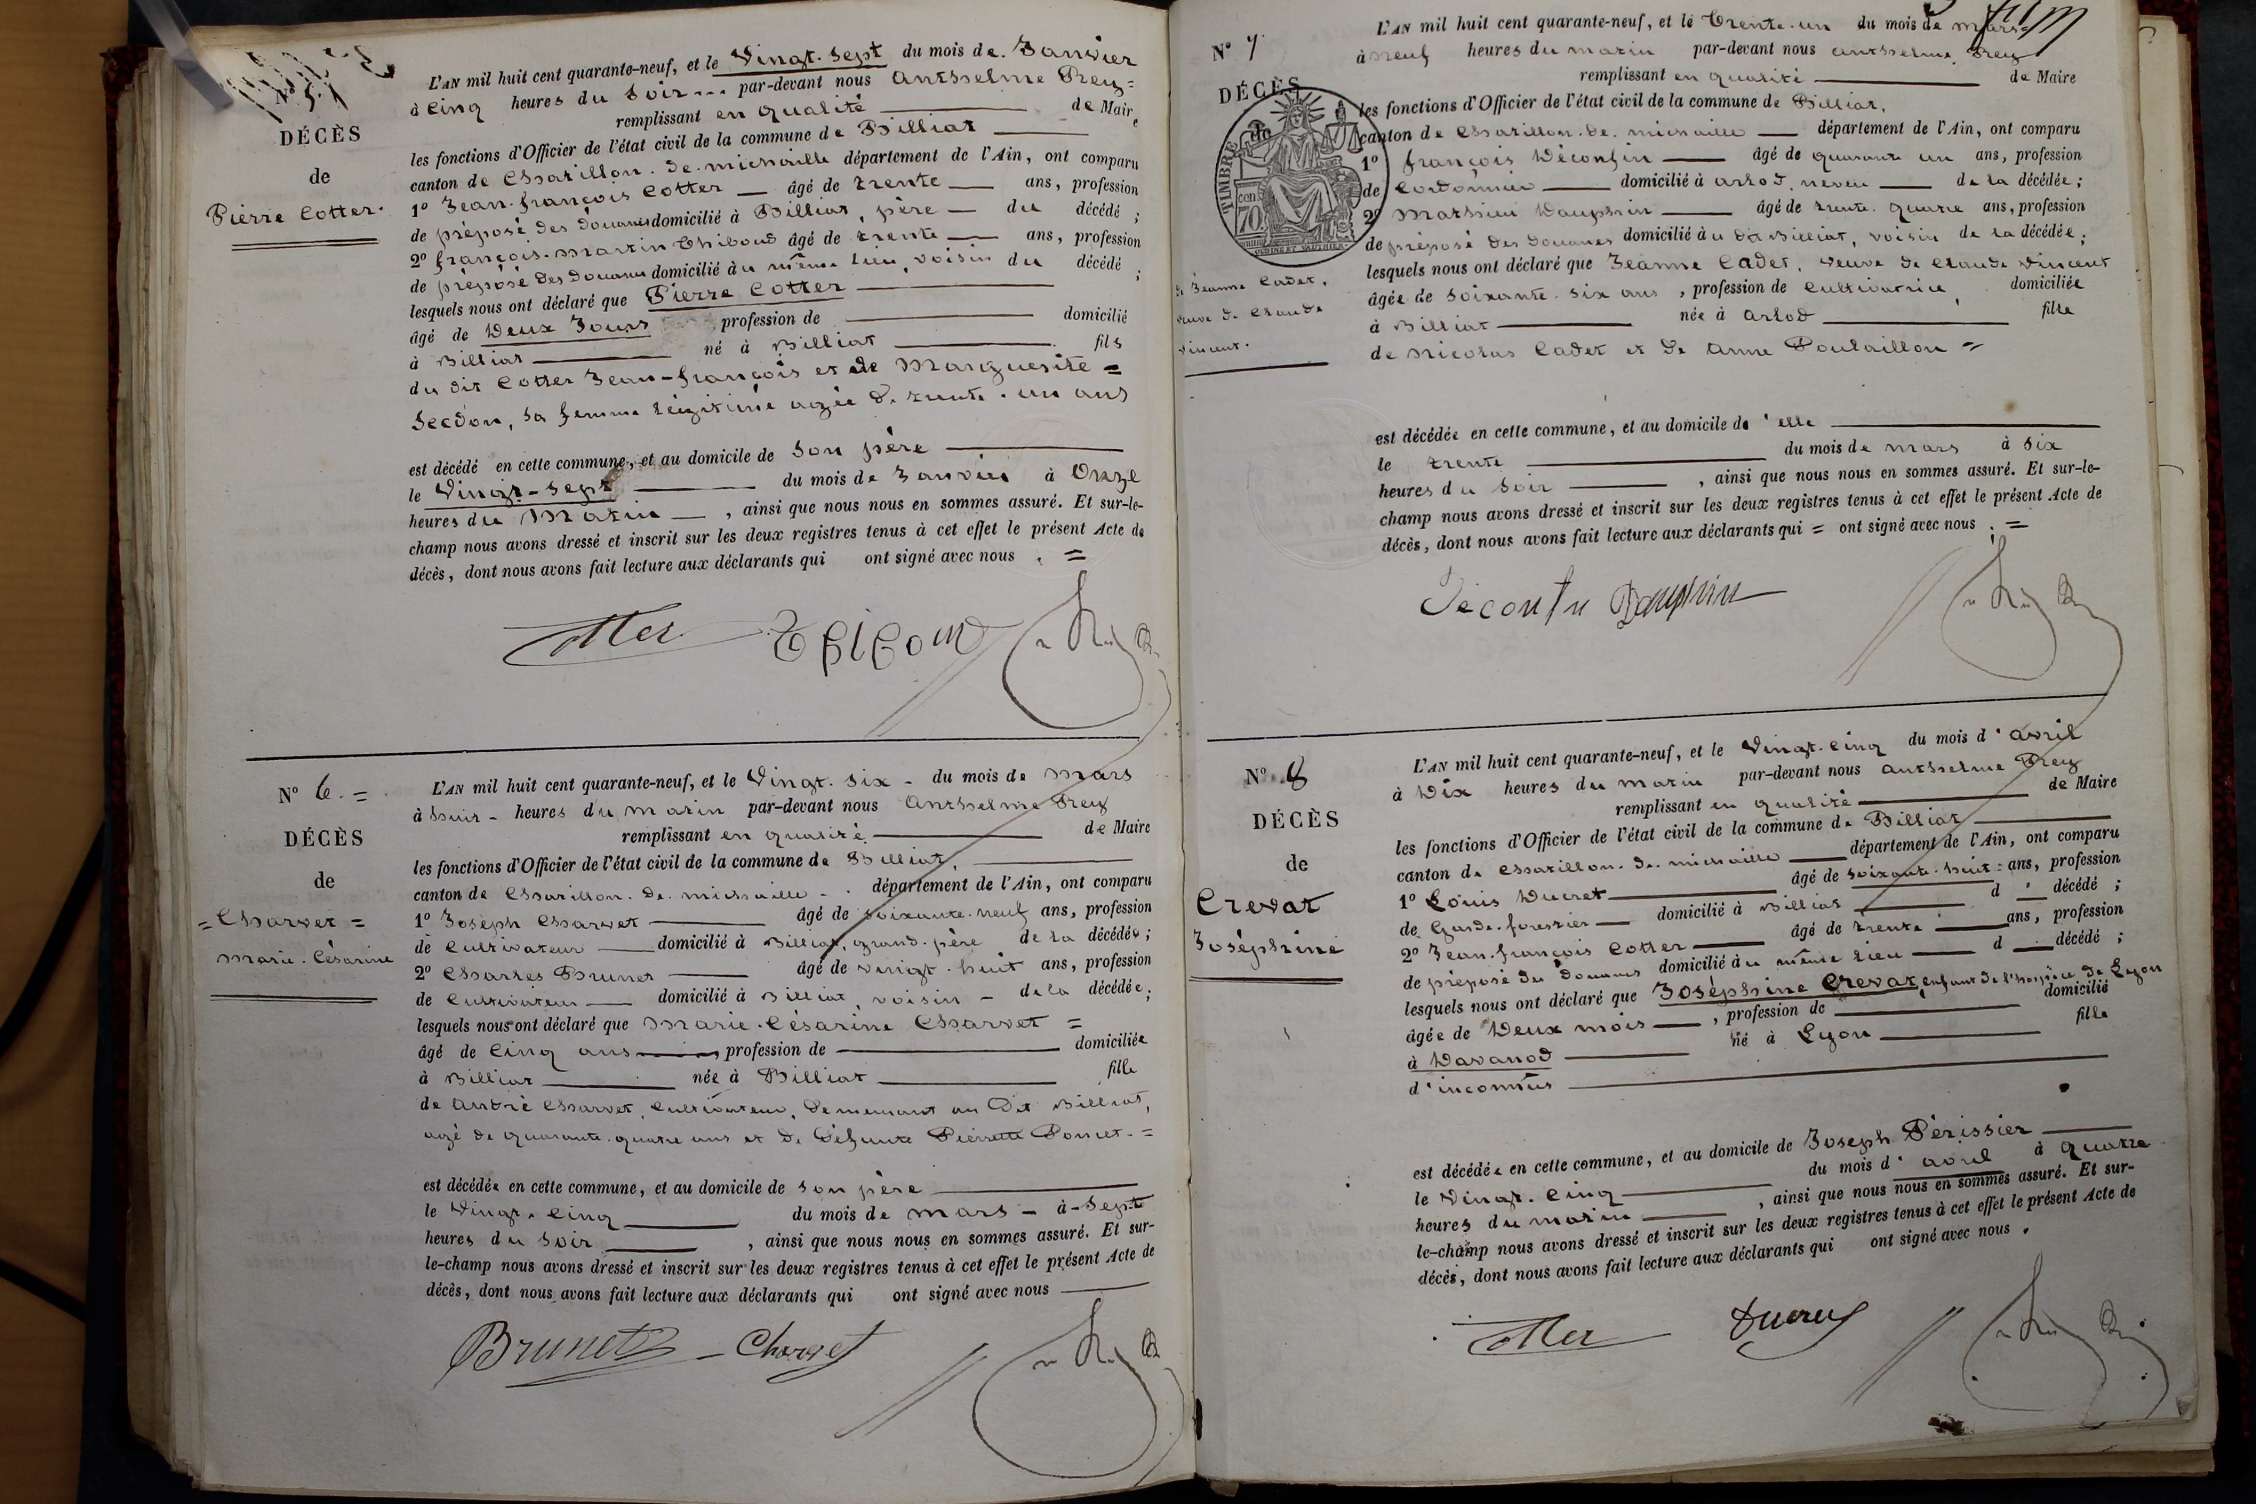 N° 5.
DÉCÈS
de
Pierre Cotter.
L'AN mil huit cent quarante-neuf, et le Vingt-Sept du mois de Janvier
à Cinq heures du Soir par-devant nous Anthelme Prey =
remplissant en qualité de Maire
les fonctions d'Officier de l'état civil de la commune de Billiat
canton de Chatillon-de-michaille département de l'Ain, ont comparu
1° Jean-françois Cotter âgé de trente ans, profession
de préposé des douanes domicilié à Billiat, père du décédé ;
2° françois-martin Thiboud âgé de trente ans, profession
de préposé des douanes domicilié au même lieu, voisin du décédé ;
lesquels nous ont déclaré que Pierre Cotter
âgé de Deux Jours profession de domicilié
à Billiat né à Billiat fils
du dit Cotter Jean-françois et de Marguerite =
Secdon, sa femme légitime agée de trente-un ans
est décédé en cette commune, et au domicile de Son père
le Vingt-Sept du mois de Janvier à Onze
heures du Matin, ainsi que nous nous en sommes assuré. Et sur-le-
champ nous avons dressé et inscrit sur les deux registres tenus à cet effet le présent Acte de
décès, dont nous avons fait lecture aux déclarants qui ont signé avec nous. =
Cotter Thiboud
N° 6. =
DÉCÈS
de
= Charvet =
Marie-Césarine
L'AN mil huit cent quarante-neuf, et le Vingt-Six du mois de Mars
à huit heures du matin par-devant nous Anthelme Prey
remplissant en qualité de Maire
les fonctions d'Officier de l'état civil de la commune de Billiat,
canton de Chatillon-de-michaille département de l'Ain, ont comparu
1° Joseph Charvet âgé de soixante-neuf ans, profession
de Cultivateur domicilié à Billiat, grand-père de la décédée ;
2° Charles Brunet âgé de vingt-huit ans, profession
de Cultivateur domicilié à Billiat, voisin de la décédée ;
lesquels nous ont déclaré que Marie-Césarine Charvet =
âgé de Cinq ans, profession de domiciliée
à Billiat née à Billiat fille
de André Charvet, Cultivateur, demeurant au Dit Billiat,
agé de quarante-quatre ans et de Défunte Pierrette Poncet. =
est décédée en cette commune, et au domicile de son père
le Vingt-Cinq du mois de mars à Sept
heures du Soir, ainsi que nous nous en sommes assuré. Et sur-
le-champ nous avons dressé et inscrit sur les deux registres tenus à cet effet le présent Acte de
décès, dont nous avons fait lecture aux déclarants qui ont signé avec nous
Brunet Charvet
N° 7
DÉCÈS
de
TIMBRE
70
de Jeanne Cadet,
veuve de Claude
Vincent.
L'AN mil huit cent quarante-neuf, et le Trente-un du mois de mars
à neuf heures du matin par-devant nous Anthelme Prey
remplissant en qualité de Maire
les fonctions d'Officier de l'état civil de la commune de Billiat,
canton de Chatillon-de-michaille département de l'Ain, ont comparu
1° françois Déconfin âgé de quarante un ans, profession
de Cordonnier domicilié à arlod, neveu de la décédée ;
2° Mathieu Dauphin âgé de trente-quatre ans, profession
de préposé des douanes domicilié au dit Billiat, voisin de la décédée ;
lesquels nous ont déclaré que Jeanne Cadet, veuve de Claude Vincent
âgée de soixante-six ans, profession de Cultivatrice, domiciliée
à Billiat née à Arlod fille
de Nicolas Cadet et de Anne Poulaillon =
est décédée en cette commune, et au domicile d'elle
le trente du mois de mars à Six
heures du Soir, ainsi que nous nous en sommes assuré. Et sur-le-
champ nous avons dressé et inscrit sur les deux registres tenus à cet effet le présent Acte de
décès, dont nous avons fait lecture aux déclarants qui = ont signé avec nous. =
Déconfin Dauphin
N° 8
DÉCÈS
de
Crevat
Joséphine
L'AN mil huit cent quarante-neuf, et le Vingt-Cinq du mois d'avril
à Dix heures du matin par-devant nous Anthelme Prey
remplissant en qualité de Maire
les fonctions d'Officier de l'état civil de la commune de Billiat
canton de Chatillon-de-michaille département de l'Ain, ont comparu
1° Louis Ducret âgé de soixante-huit ans, profession
de Garde-forestier domicilié à Billiat d décédé ;
2° Jean-françois Cotter âgé de trente ans, profession
de préposé des douanes domicilié au même lieu d décédé ;
lesquels nous ont déclaré que Joséphine Crevat, enfant de l'hospice de Lyon
âgée de Deux mois, profession de domicilié
à Davanod né à Lyon fille
d'inconnus
est décédée en cette commune, et au domicile de Joseph Périssier
le Vingt-Cinq du mois d'avril à quatre
heures du matin, ainsi que nous nous en sommes assuré. Et sur-
le-champ nous avons dressé et inscrit sur les deux registres tenus à cet effet le présent Acte de
décès, dont nous avons fait lecture aux déclarants qui ont signé avec nous.
Cotter Ducret